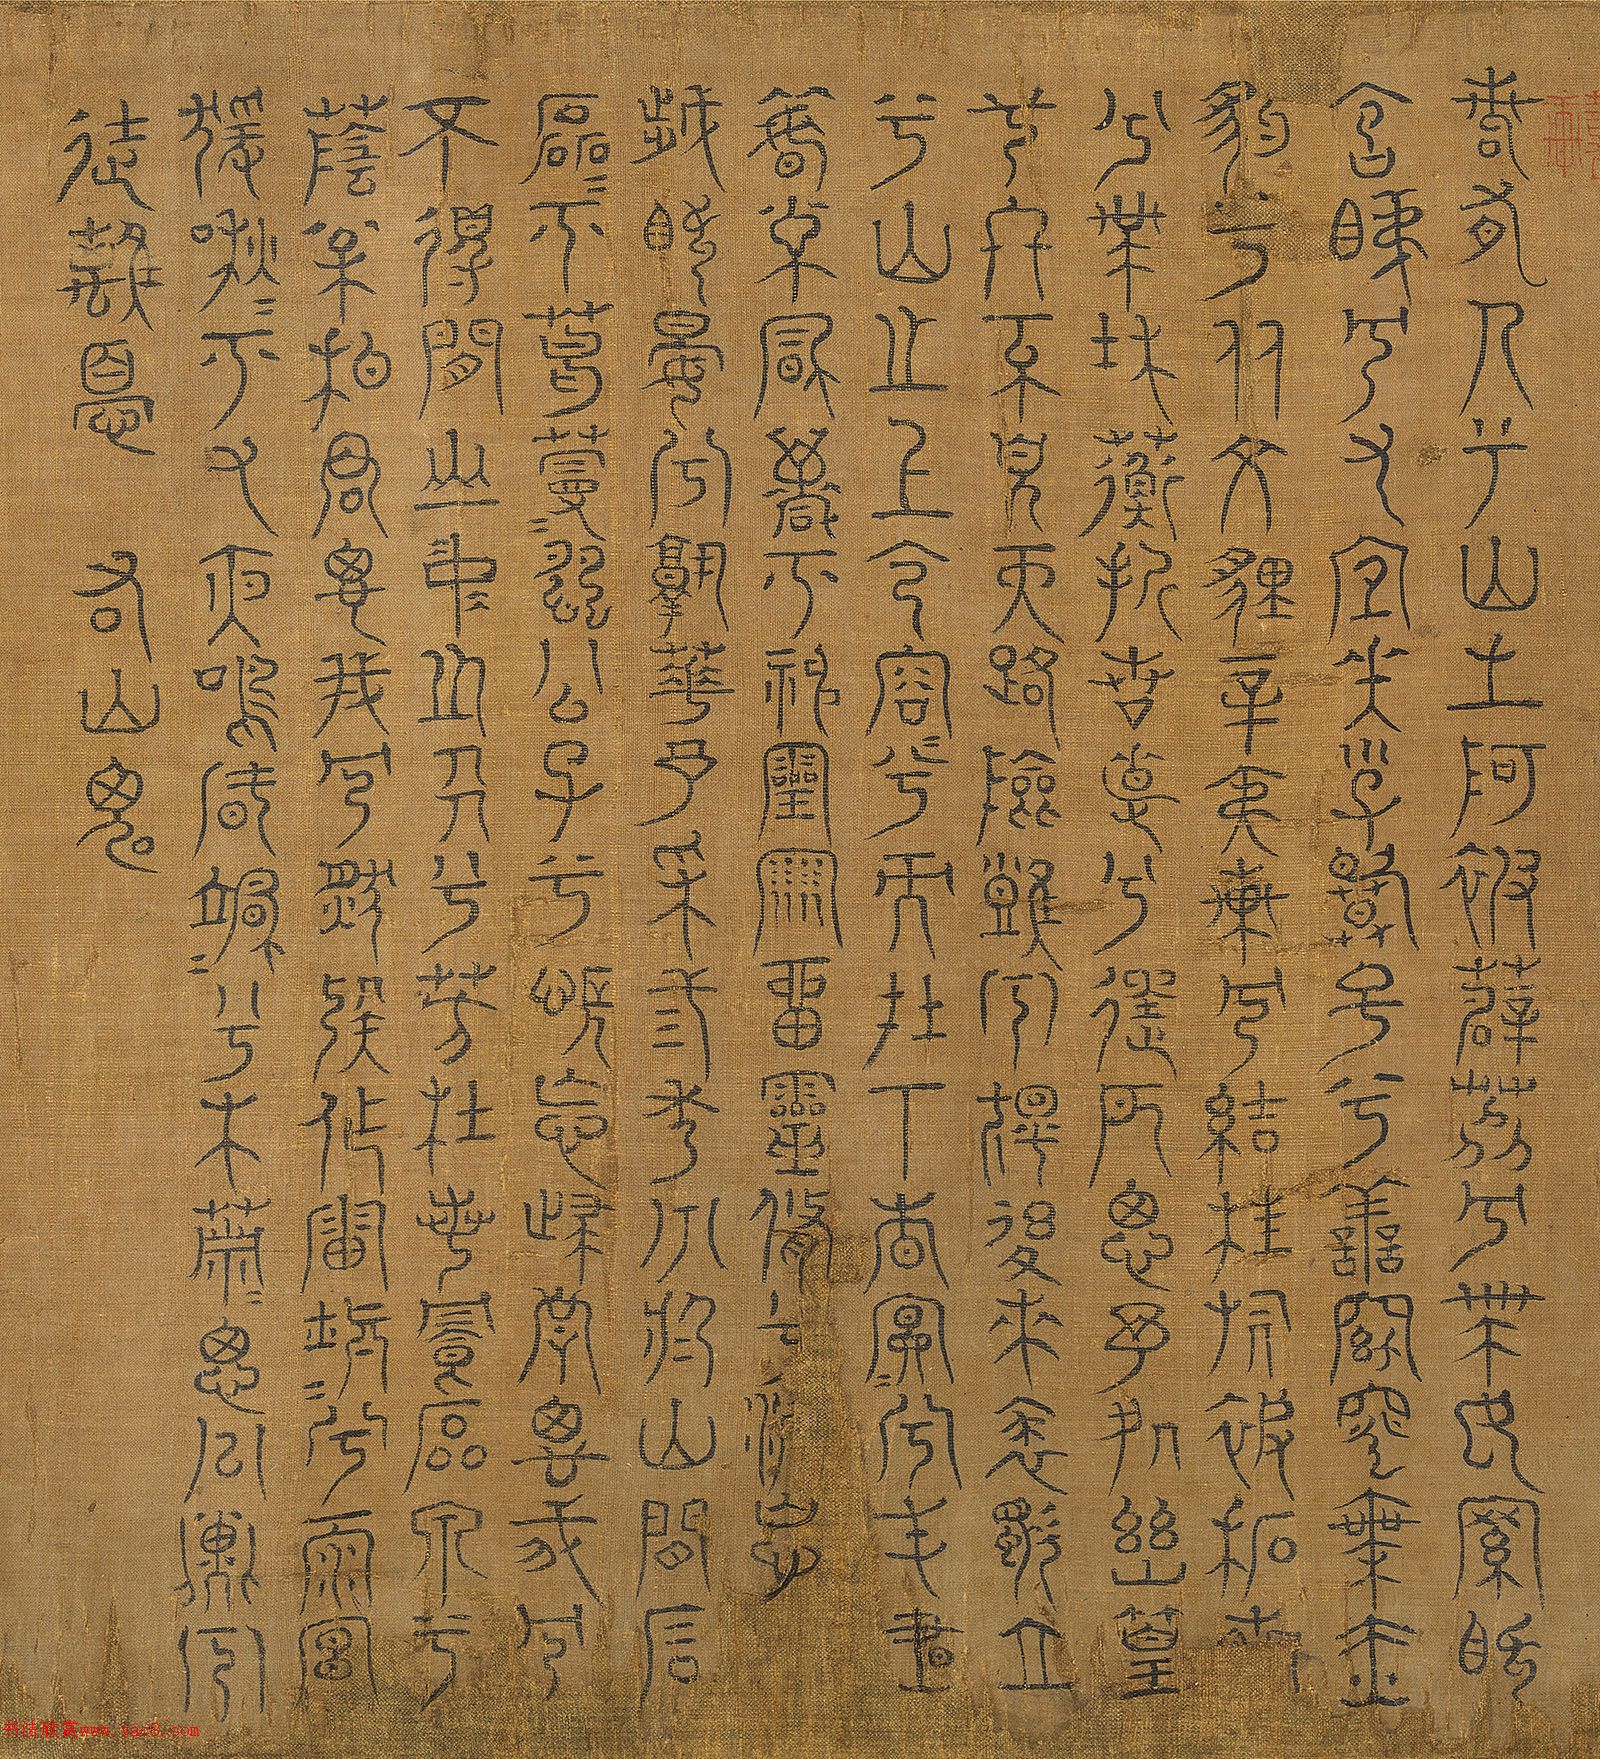 若有人兮山之阿被薜荔兮帶女羅既
含睇兮又宜笑子慕予兮善窈窕乘赤
豹兮从文貍辛夷車兮結桂旗被石蘭
兮帶杜衡折芳馨兮遺所思予處幽篁
兮終不見天路險難兮獨後來表獨立
兮山之上雲容容兮而在下杳冥冥兮羌晝
晦東風飄兮神靈雨留靈脩兮憺忘
歲既晏兮孰華予采三秀兮於山間石
磊磊兮葛蔓蔓怨公子兮悵忘歸君思我兮
不得間山中人兮芳杜若飲石泉兮
蔭松柏君思我兮然疑作雷填填兮雨冥
猨啾啾兮又夜鳴風颯颯兮木蕭蕭思公子兮
徒離憂 右山鬼
书法欣赏www.yac8.com